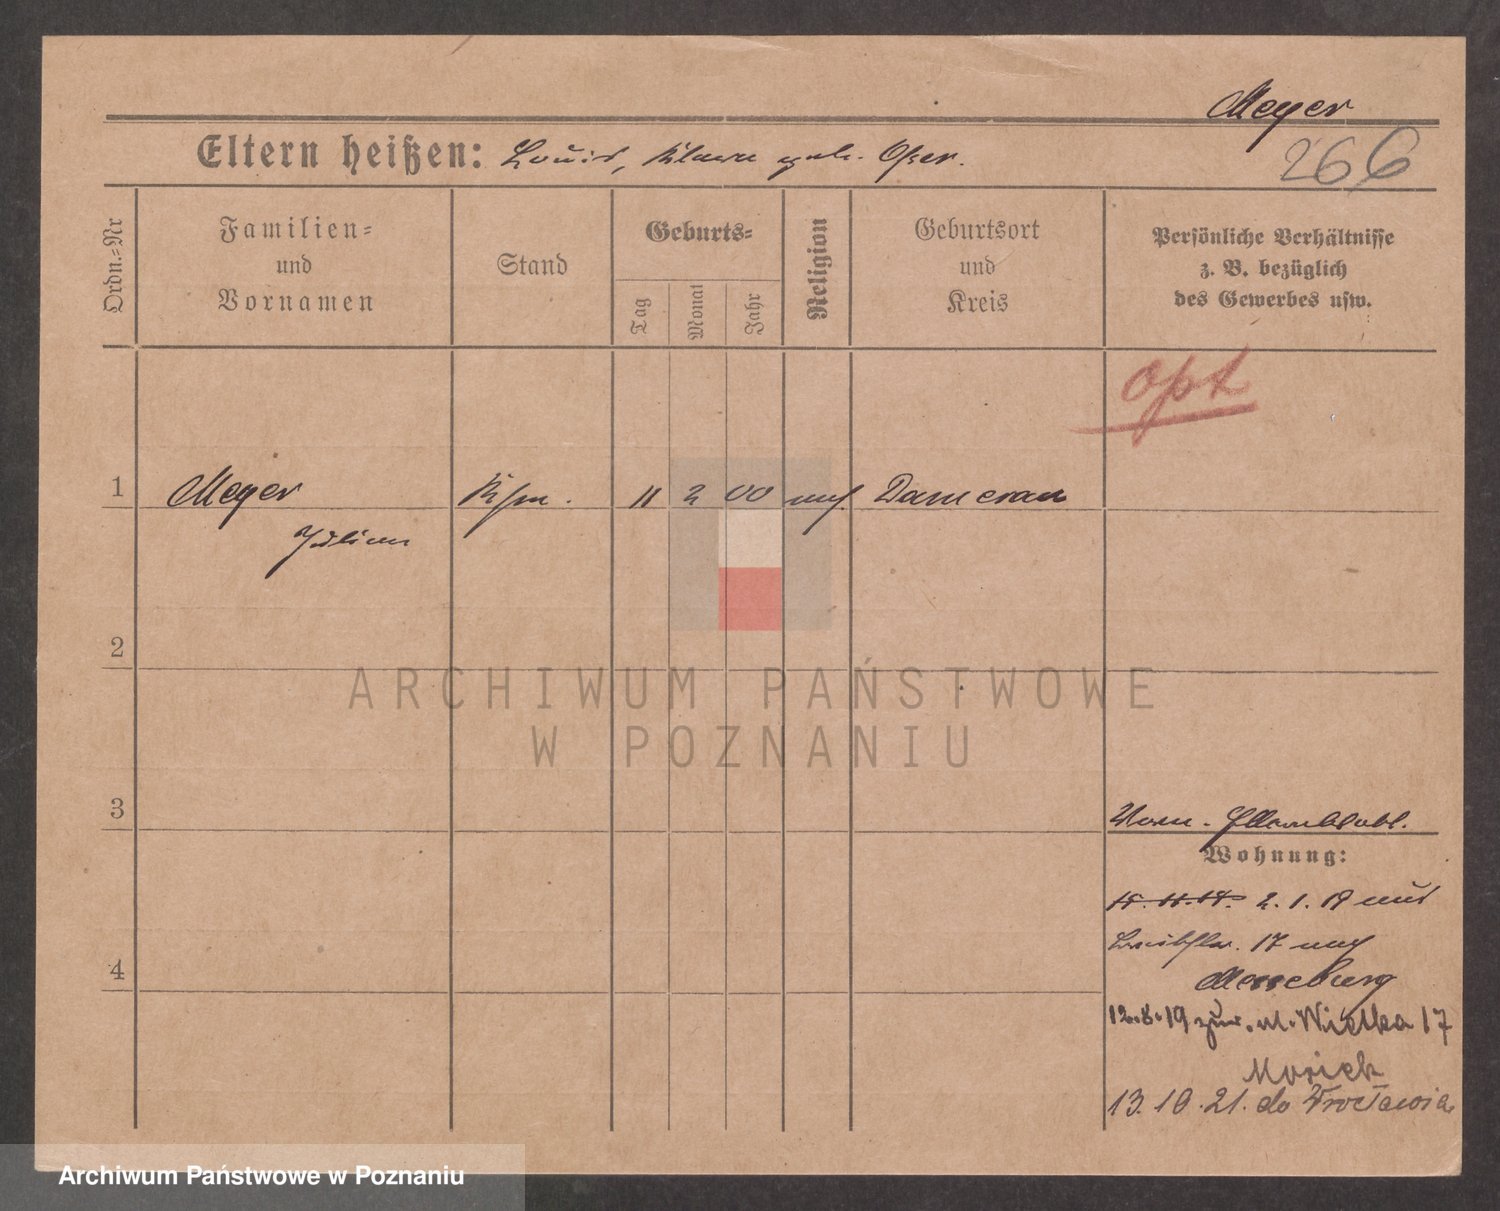 Meyer
266
Eltern heißen: Louis, geb.
Ordn.-Nr
Familien-
und
Vornamen
Stand
Geburts-
Tag
Monat
Jahr
Religion
Geburtsort
und
Kreis
Persönliche Verhältnisse
z. B. bezüglich
des Gewerbes usw.
opt
1 Meyer Kfm. 11 2 00 Damerau
Julian
2
ARCHIWUM PAŃSTWOWE
W POZNANIU
3
Wohnung:
2.1.19
17
Merseburg
12.8.19 ul. Wielka 17
4
13.10.21. do Wrocławia
Archiwum Państwowe w Poznaniu